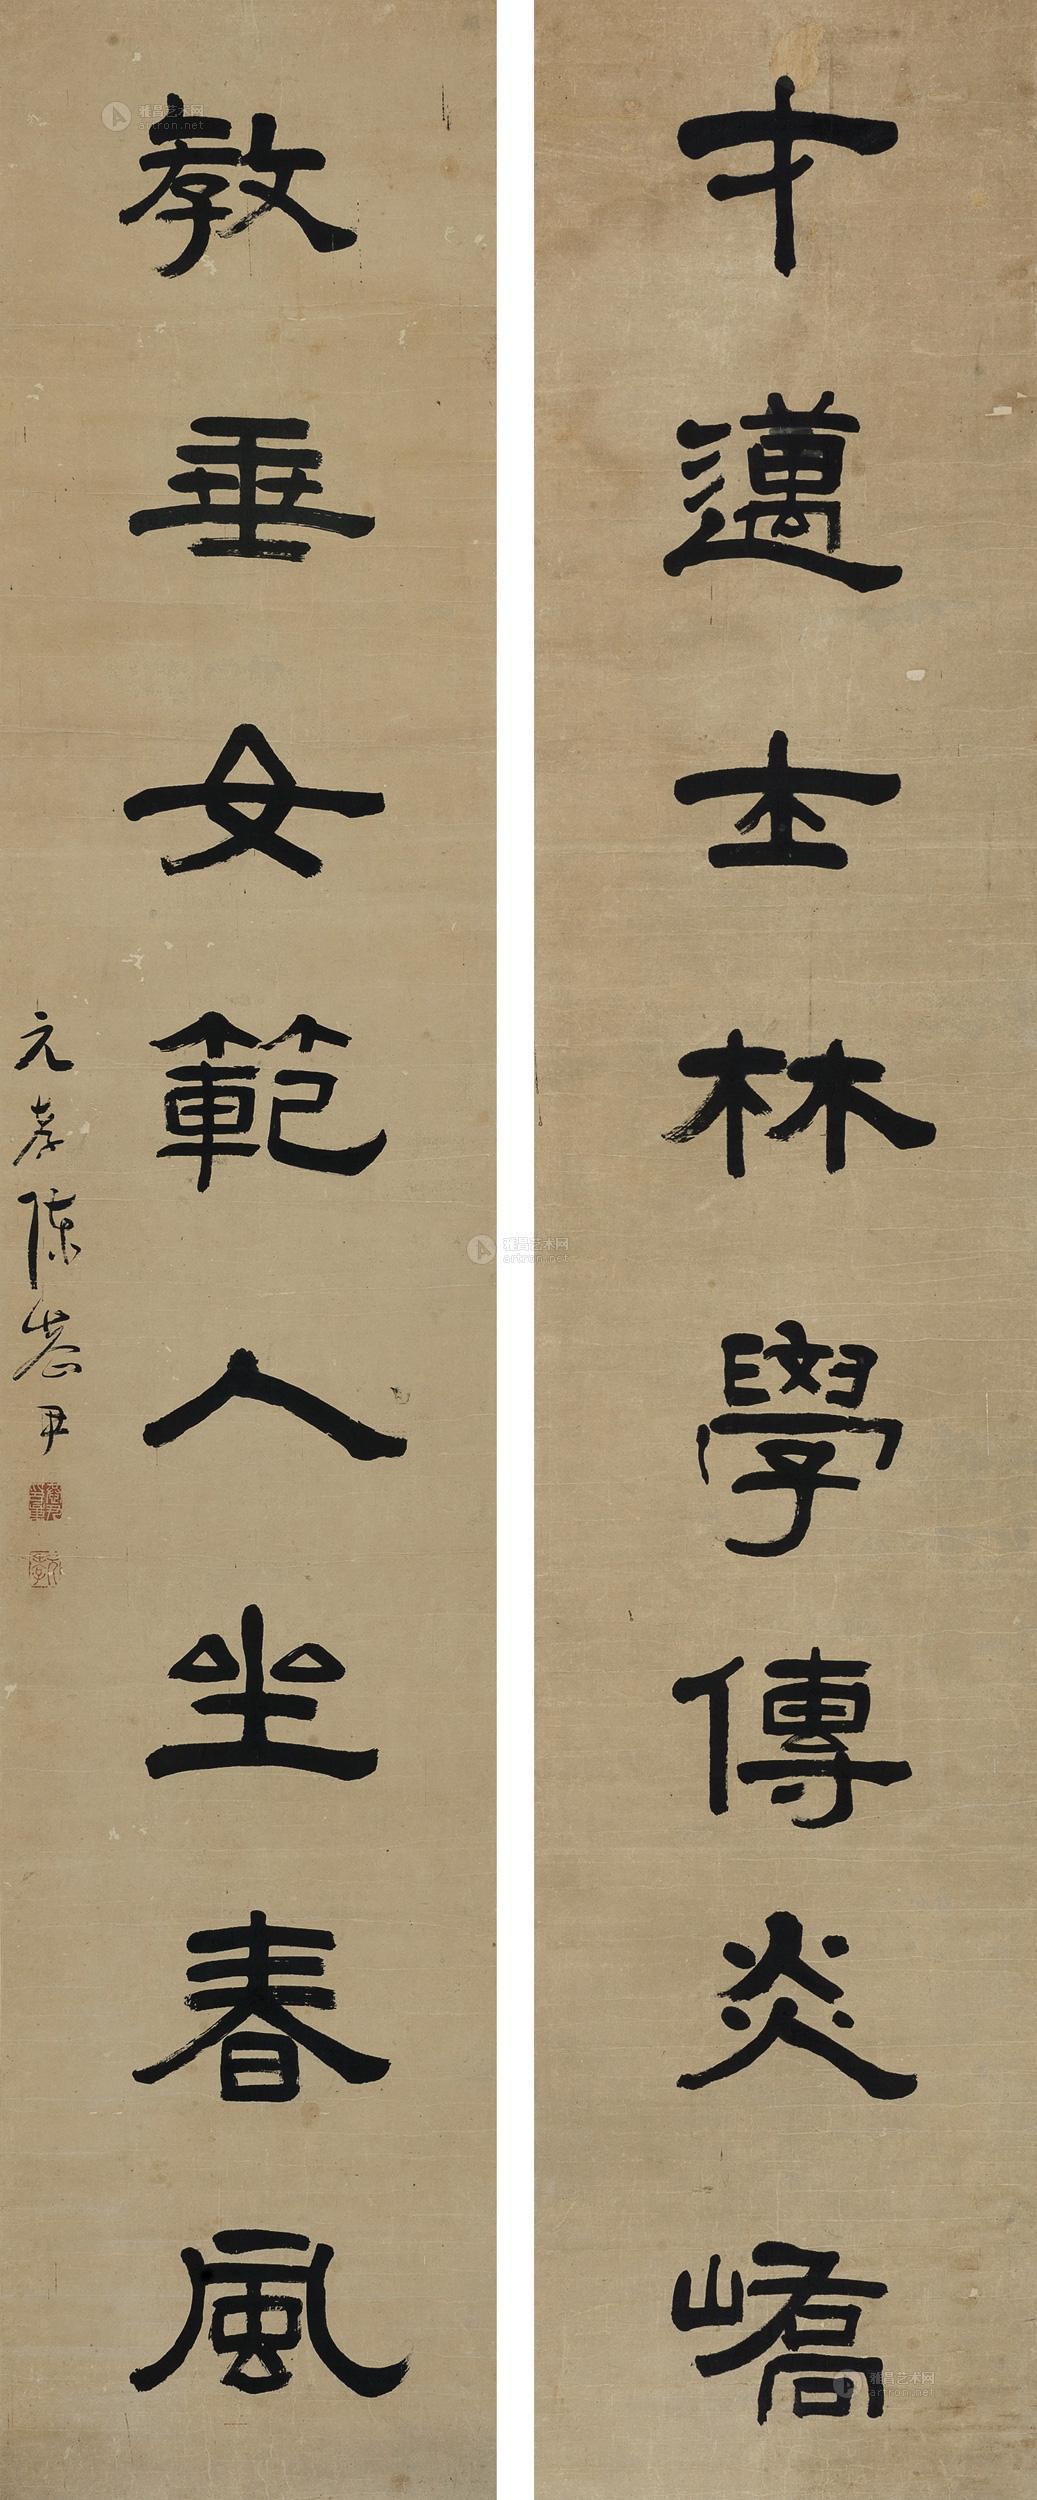 才邁士林學傳炎嶠
教垂女範人坐春風
元孝陳恭尹
元孝
雅昌艺术网
artron.net
雅昌艺术网
artron.net
雅昌艺术网
artron.net